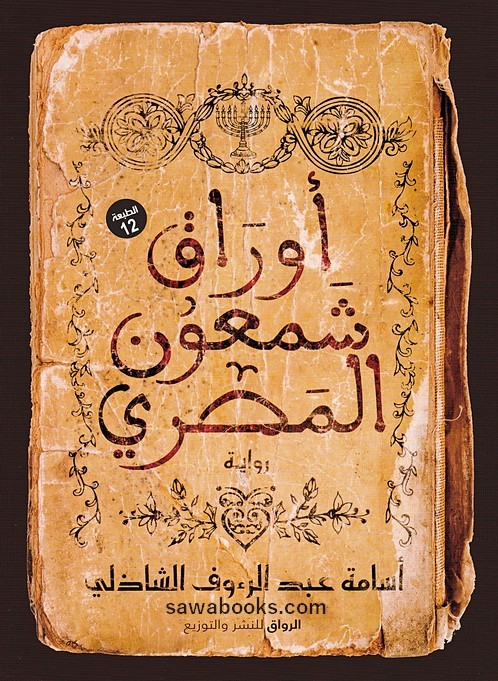 الطبعة
12
أورَاق
شِمعُون
المَصري
رواية
أسامة عبد الرءوف الشاذلي
sawabooks.com
الرواق للنشر والتوزيع